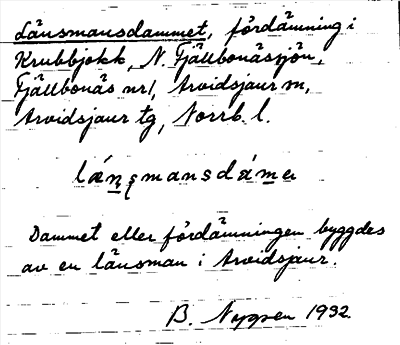 Länsmansdammet, fördämning i
Krubbjokk, N. Fjällbonässjön,
Fjällbonäs nr 1, Arvidsjaur sn,
Arvidsjaur tg, Norrb. l.
lǽn̥smansdám̲er
Dammet eller fördämningen byggdes
av en länsman i Arvidsjaur.
B. Nygren 1932.